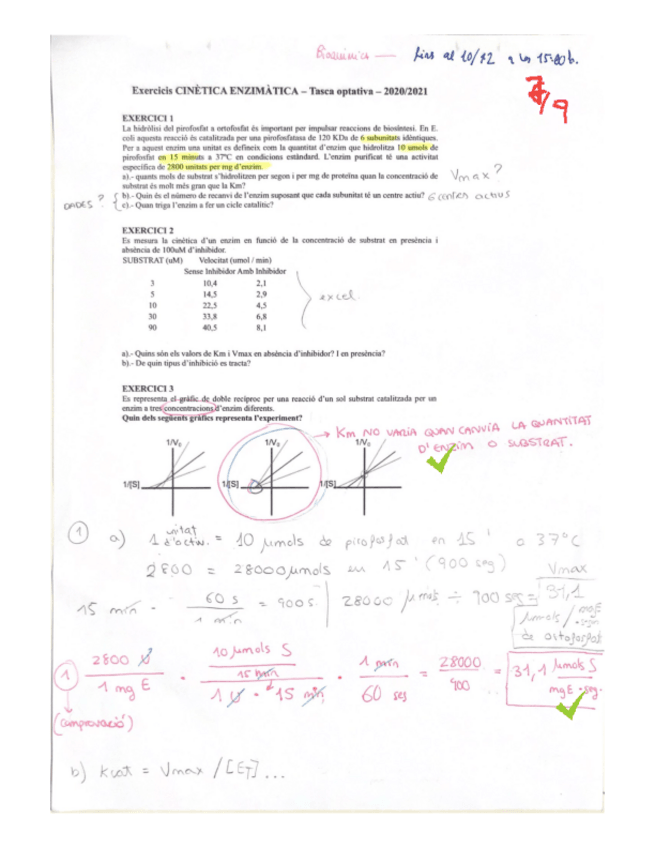 Bioquímica — fins al 10/12 a les 15:00h.
Exercicis CINÈTICA ENZIMÀTICA – Tasca optativa – 2020/2021
7/9
EXERCICI 1
La hidròlisi del pirofosfat a ortofosfat és important per impulsar reaccions de biosíntesi. En E.
coli aquesta reacció és catalitzada per una pirofosfatasa de 120 KDa de 6 subunitats idèntiques.
Per a aquest enzim una unitat es defineix com la quantitat d'enzim que hidrolitza 10 umols de
pirofosfat en 15 minuts a 37ºC en condicions estàndard. L'enzim purificat té una activitat
específica de 2800 unitats per mg d'enzim.
a).- quants mols de substrat s'hidrolitzen per segon i per mg de proteïna quan la concentració de
substrat és molt més gran que la Km?
Vmax?
b).- Quin és el número de recanvi de l'enzim suposant que cada subunitat té un centre actiu? 6 centres actius
c).- Quan triga l'enzim a fer un cicle catalític?
DADES?
EXERCICI 2
Es mesura la cinètica d'un enzim en funció de la concentració de substrat en presència i
absència de 100uM d'inhibidor.
SUBSTRAT (uM) Velocitat (umol / min)
Sense Inhibidor Amb Inhibidor
3 10,4 2,1
5 14,5 2,9
10 22,5 4,5
30 33,8 6,8
90 40,5 8,1
excel.
a).- Quins són els valors de Km i Vmax en absència d'inhibidor? I en presència?
b).- De quin tipus d'inhibició es tracta?
EXERCICI 3
Es representa el gràfic de doble recíproc per una reacció d'un sol substrat catalitzada per un
enzim a tres concentracions d'enzim diferents.
Quin dels següents gràfics representa l'experiment?
→ Km NO VARIA QUAN CANVIA LA QUANTITAT
D'ENZIM O SUBSTRAT.
1/V₀ 1/V₀ 1/V₀
1/[S] 1/[S] 1/[S]
① a) 1 unitat d'activ. = 10 µmols de pirofosfat en 15' a 37ºC
2800 = 28000 µmols en 15' (900 seg)
Vmax
15 min · 60 s / 1 min = 900 s | 28000 µmols ÷ 900 seg = 31,1
µmols / mgE · segon
de ortofosfat
① 2800 U / 1 mg E · 10 µmols S / 1 U · 15 min · 1 min / 60 seg = 28000 / 900 = 31,1 µmols S / mgE · seg.
(comprovació)
b) kcat = Vmax / [ET] ...